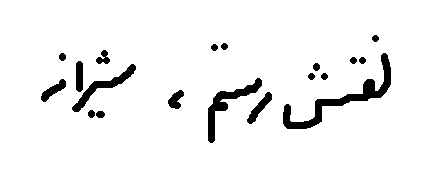 نقش رستم ، شیراز